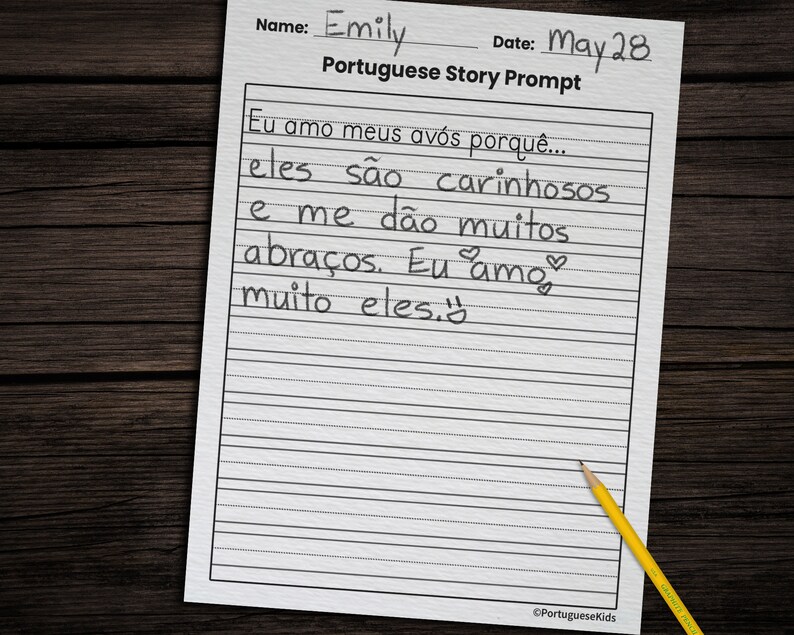 Name: Emily Date: May 28
Portuguese Story Prompt
Eu amo meus avós porquê...
eles são carinhosos
e me dão muitos
abraços. Eu amo
muito eles.
©PortugueseKids
GRAPHITE PENCIL